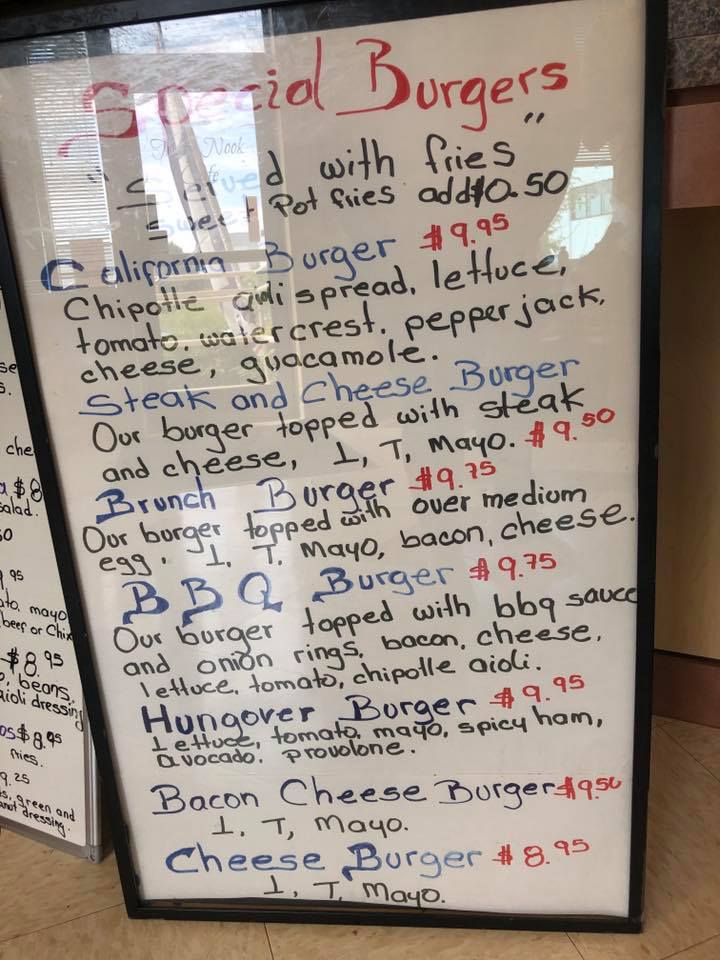 Special Burgers
"Served with fries"
Sweet Pot fries add $0.50
California Burger $9.95
Chipotle aioli spread, lettuce,
tomato, watercrest, pepper jack,
cheese, guacamole.
Steak and Cheese Burger
Our burger topped with steak
and cheese, L, T, Mayo. $9.50
Brunch Burger $9.75
Our burger topped with over medium
egg. L. T. Mayo, bacon, cheese.
BBQ Burger $9.75
Our burger topped with bbq sauce
and onion rings, bacon, cheese,
lettuce, tomato, chipolle aioli.
Hungover Burger $9.95
Lettuce, tomato, mayo, spicy ham,
avocado, provolone.
Bacon Cheese Burger $9.50
L. T, Mayo.
Cheese Burger $8.95
L, T, Mayo.
che
$8
salad.
.95
mayo
beef or
$8.95
beans,
aioli dressing
$8.95
fries.
9.25
green and
dressing.
Nook